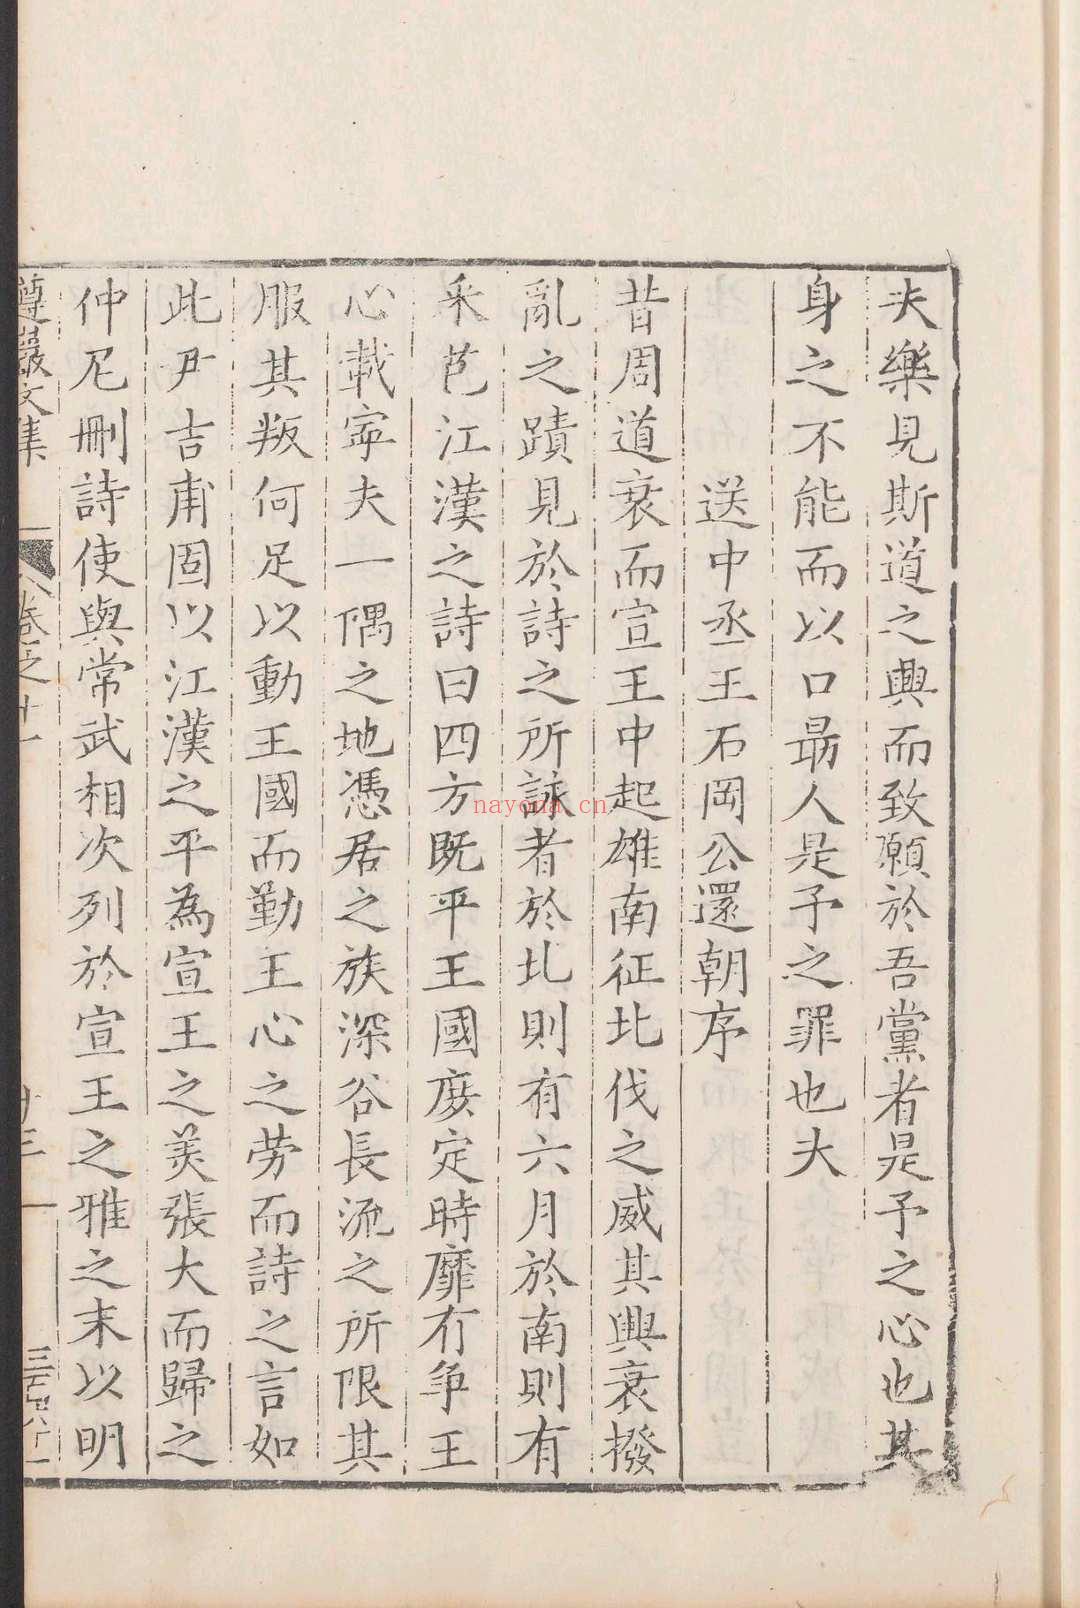 夫樂見斯道之興而致願於吾黨者是予之心也其
身之不能而以口勗人是予之罪也夫
送中丞王石岡公還朝序
昔周道衰而宣王中起雄南征北伐之威其興衰撥
亂之蹟見於詩之所詠者於北則有六月於南則有
采芑江漢之詩曰四方既平王國庶定時靡有爭王
心載寧夫一隅之地憑居之族深谷長流之所限其
服其叛何足以動王國而勤王心之劳而詩之言如
此尹吉甫固以江漢之平為宣王之美張大而歸之
仲尼刪詩使與常武相次列於宣王之雅之末以明
遵巖文集
卷之十一
廿三
nayona.cn